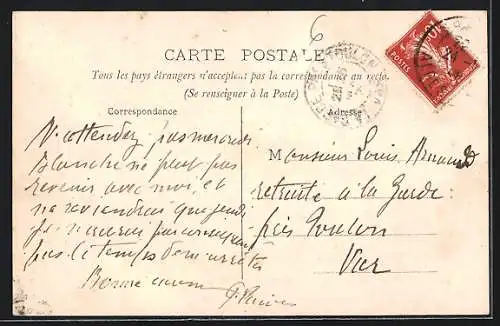 6
CARTE POSTALE
Tous les pays étrangers n'acceptent pas la correspondance au recto.
(Se renseigner à la Poste)
Correspondance
Adresse
N'attendez pas mercredi
Blanche ne peut pas
revenir avec moi, et
ne reviendrai que jeudi
je n'aurai par conséquent
pas le temps de m'arrêter
Bonne
Monsieur Louis Arnaud
retraité à la Garde
près Toulon
Var
POSTES